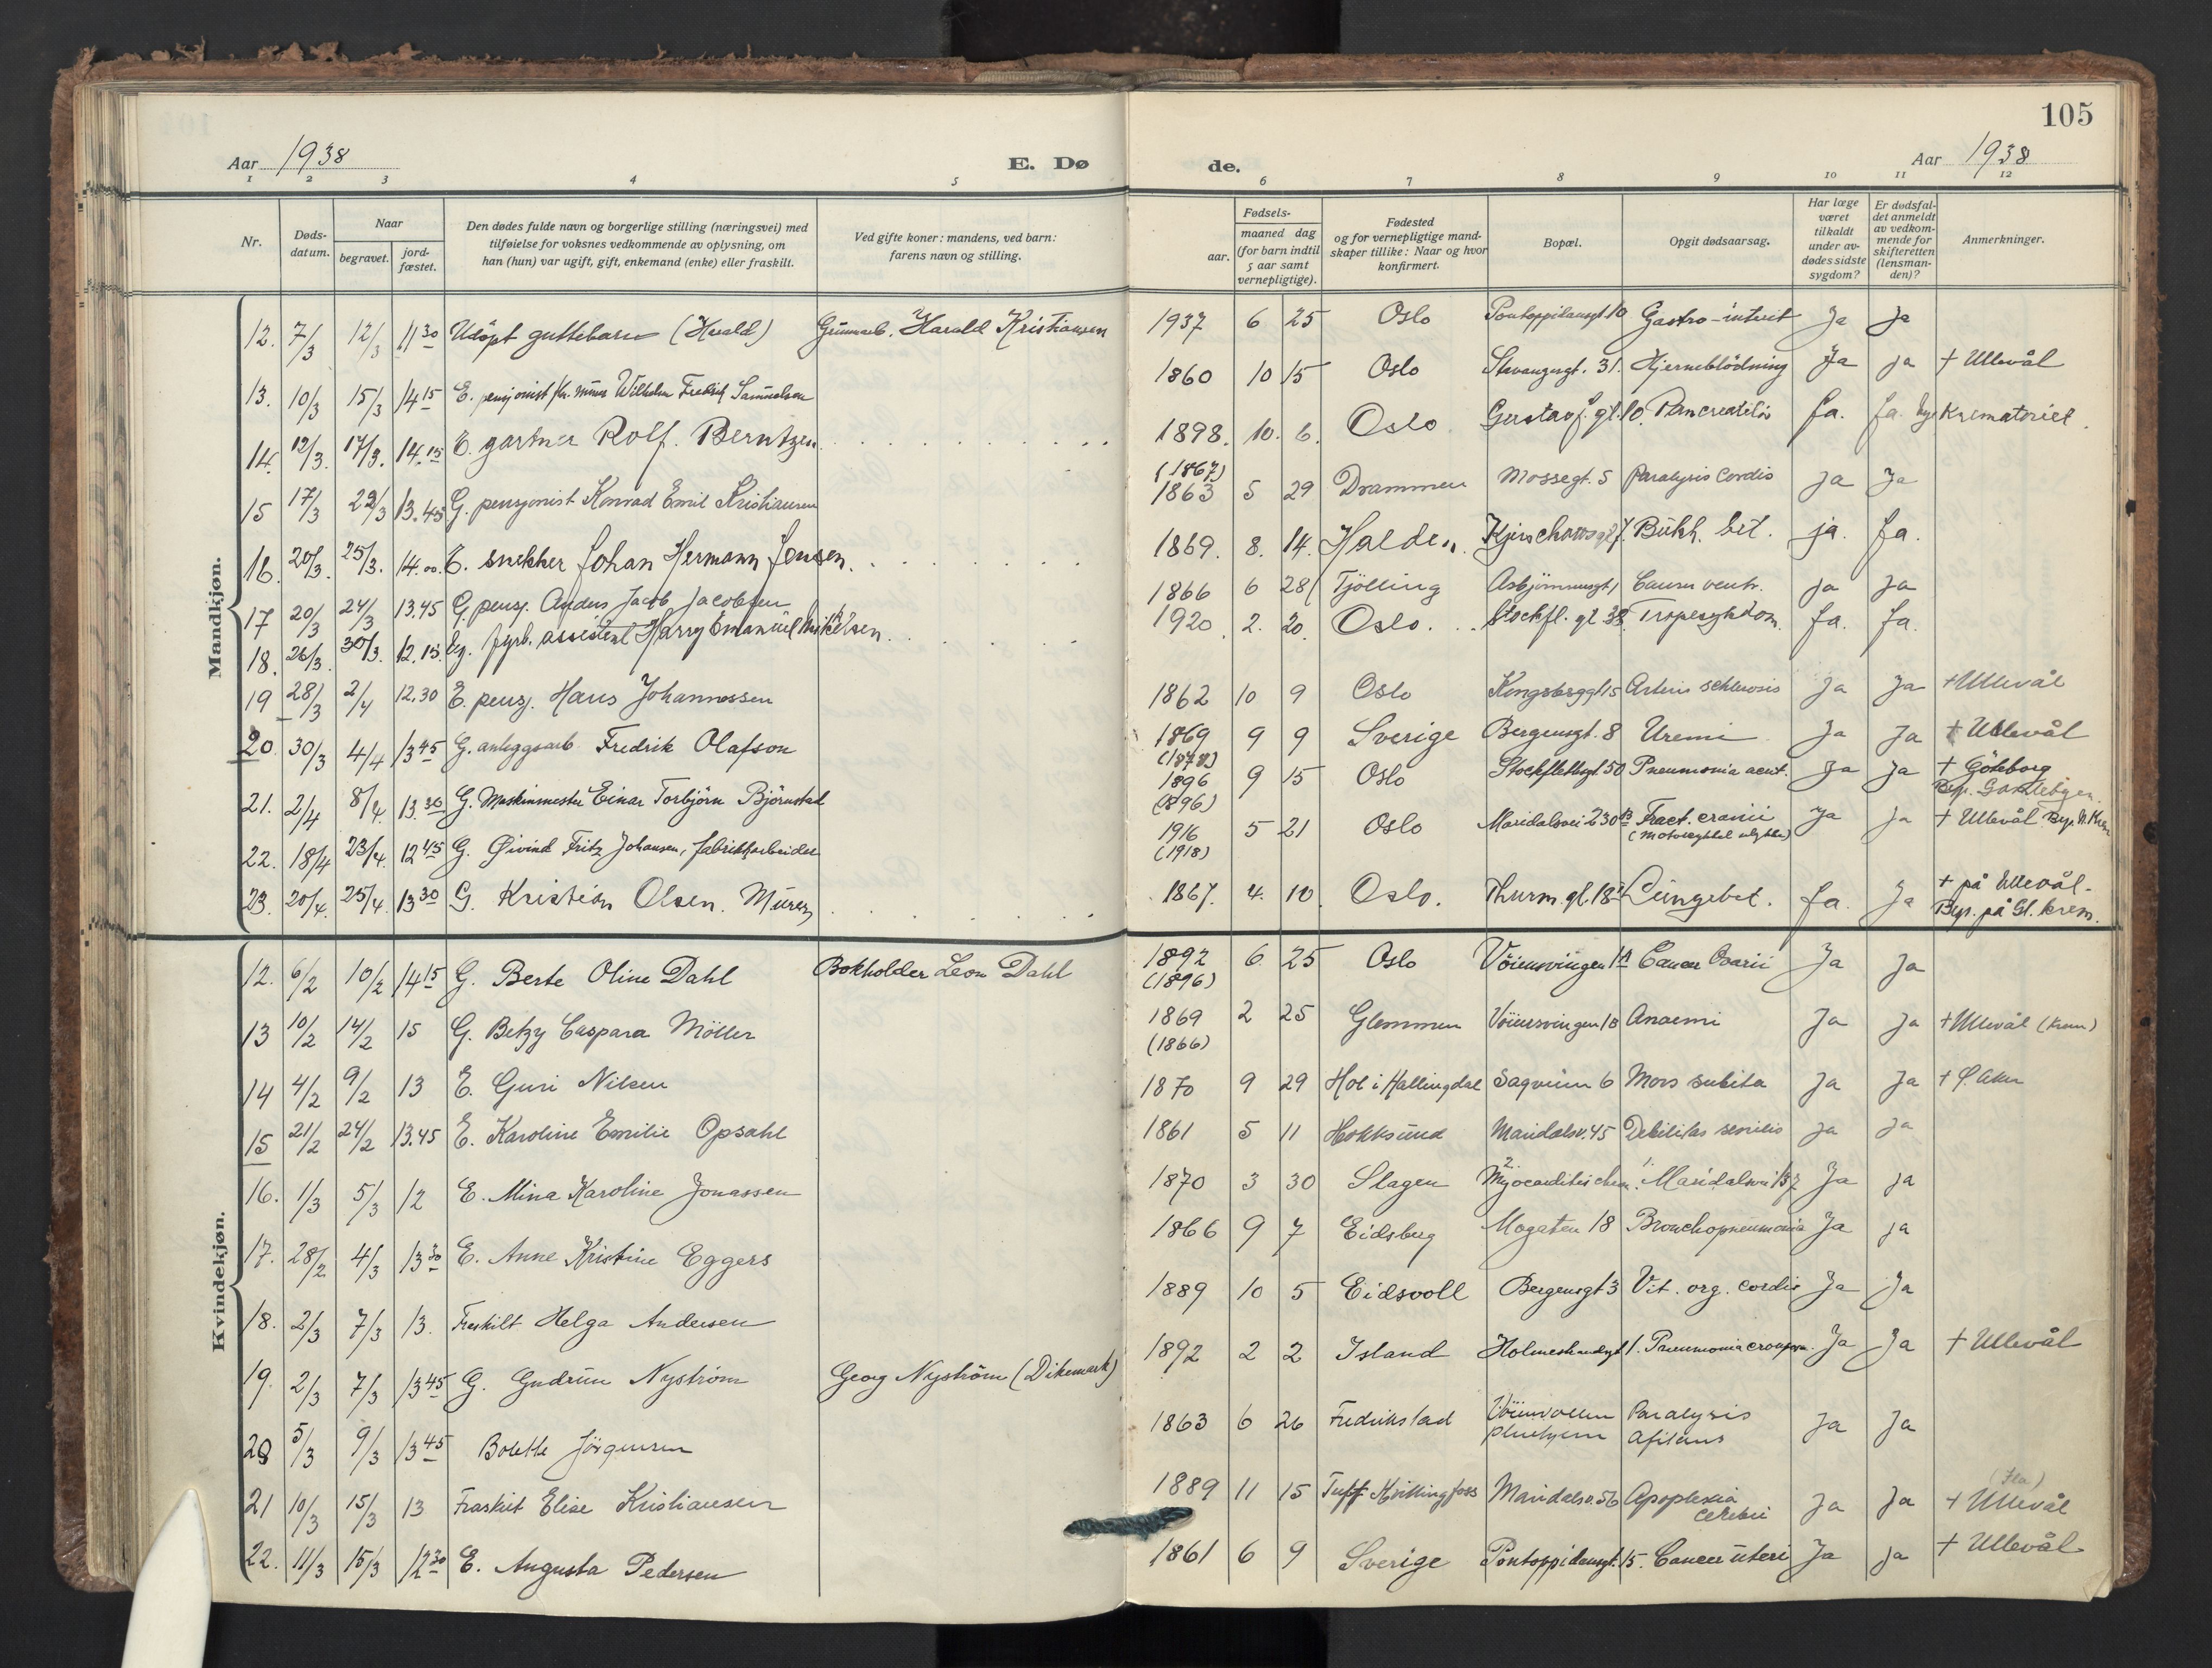 105
Aar 1938 E. Dø de. Aar 1938
1 2 3 4 5 6 7 8 9 10 11 12
Nr.
Døds-
datum.
Naar
begravet.
jord-
fæstet.
Den dødes fulde navn og borgerlige stilling (næringsvei) med
tilføielse for voksnes vedkommende av oplysning, om
han (hun) var ugift, gift, enkemand (enke) eller fraskilt.
Ved gifte koner: mandens, ved barn:
farens navn og stilling.
Fødsels-
aar.
maaned dag
(for barn indtil
5 aar samt
vernepligtige).
Fødested
og for vernepligtige mand-
skaper tillike: Naar og hvor
konfirmert.
Bopæl.
Opgit dødsaarsag.
Har læge
været
tilkaldt
under av-
dødes sidste
sygdom?
Er dødsfal-
det anmeldt
av vedkom-
mende for
skifteretten
(lensman-
den)?
Anmerkninger.
Mandkjøn.
12. 7/3 12/3 11 30 Udöpt guttebarn (Harald) Harald Kristiansen 1937 6 25 Oslo Pontoppidansgt 10 Gastro-interit Ja Ja
13. 10/3 15/3 14 15 E. pensjonist Wilhelm Fredrik Samuelsen 1860 10 15 Oslo Stavangergt. 31. Hjerneblödning Ja ja + Ullevål
14. 12/3. 17/3. 14.15 E. gartner Rolf. Berntzen. 1898. 10. 6. Oslo Gustav j. gt. 10. Pancreatitis Ja. Ja. Krematoriet.
15 17/3 23/3 13.45 G. pensjonist Konrad Emil Kristiansen (1867) 1863 5 29 Drammen Mossegt. 5 Paralysis Cordis Ja Ja
16. 20/3. 25/3. 14.00. E. snekker Johan Hermann Jensen. 1869. 8. 14. Halden. Kjerschowsgt 7. Bukh. bet. ja. Ja.
17 20/3 24/3 13.45 G. pensj. Anders Jacob Jacobsen 1866 6 28 Tjölling Asbjörnsensgt 1 Cancer ventr. ja Ja
18. 26/3. 30/3. 12.15. Ug. fyrb. assistent Harry Emanuel Mikkelsen. 1920. 2. 20. Oslo. Stockfl. gt 38. Tropesykdom. Ja. Ja.
19 28/3 2/4 12.30 E. pensj. Hans Johannessen 1862 10 9 Oslo Kongsberggt 15 Arterio schlerosis Ja Ja + Ullevål
20. 30/3 4/4 13 45 G. anleggsarb. Fredrik Olafson 1869 9 9 Sverige Bergensgt. 8 Uremi Ja Ja + Ullevål
21. 2/4 8/4. 13.30 G. Maskinmester Einar Torbjörn Björnstad (1878) 1896 (1896) 9 15 Oslo Stockflethsgt. 50 Pneumonia acut. Ja Ja + Göteborg
22. 18/4 23/4. 12 45 G. Øivind Fritz Johansen, fabrikkarbeider 1916 (1918) 5 21 Oslo Maridalsvei 230 B Fract. cranii Ja Ja + Ullevål
23. 20/4. 25/4 13 30 G. Kristian Olsen. Murer 1867. 4. 10. Oslo. Thurm. gt. 18 Lungebet. Ja. Ja + på Ullevål.
Beg. på Gl. krem.
Kvindekjøn.
12. 6/2 10/2 14 15 G. Berte Oline Dahl Bokholder Leon Dahl 1892 (1896) 6 25 Oslo Vöiensvingen 1 A Cancer Ovarii Ja Ja
13 10/2 14/2 15 G. Betzy Caspara Möller 1869 (1866) 2 25 Glemmen Vöiensvingen 18 Anaemi Ja Ja + Ullevål (krem)
14 4/2 9/2 13 E. Guri Nilsen 1870 9 29 Hol i Hallingdal Sagveien 6 Mors subita Ja Ja + Ø. Aker
15 21/2 24/2 13.45 E. Karoline Emilie Opsahl 1861 5 11 Hokksund Maridalsv. 45 Debilitas senilis Ja Ja
16. 1/3 5/3 12 E. Mina Karoline Jonassen 1870 3 30 Slagen 2 Myocarditis chron. 1. Maridalsvei 137 Ja ja
17. 28/2 4/3 13 30 E. Anne Kristine Eggers 1866 9 7 Eidsberg Mogaten 18 Bronchopneumonia Ja ja
18. 2/3 7/3 13. Fraskilt Helga Andersen 1889 10 5 Eidsvoll Bergensgt 3 Vit. org. cordis Ja Ja
19. 2/3 7/3 13 45 G. Gudrun Nyström Georg Nyström (Dikemark) 1892 2 2 Island Holmestrandsgt 1. Pneumonia crouposa. Ja Ja + Ullevål
20 5/3 9/3 13 45 Bolette Jörgensen 1863 6 26 Fredrikstad Vöienvollen Pleiehjem Paralysis Agitans Ja Ja
21 10/3 15/3 13 Fraskilt Elise Kristiansen 1889 11 15 Kvillingfoss Maridalsv. 56 Apoplexia cerebri Ja Ja (Ila) + Ullevål
22. 11/3 15/3 12 30 E. Augusta Pedersen 1861 6 9 Sverige Pontoppidansgt. 15. Cancer uteri Ja ja + Ullevål